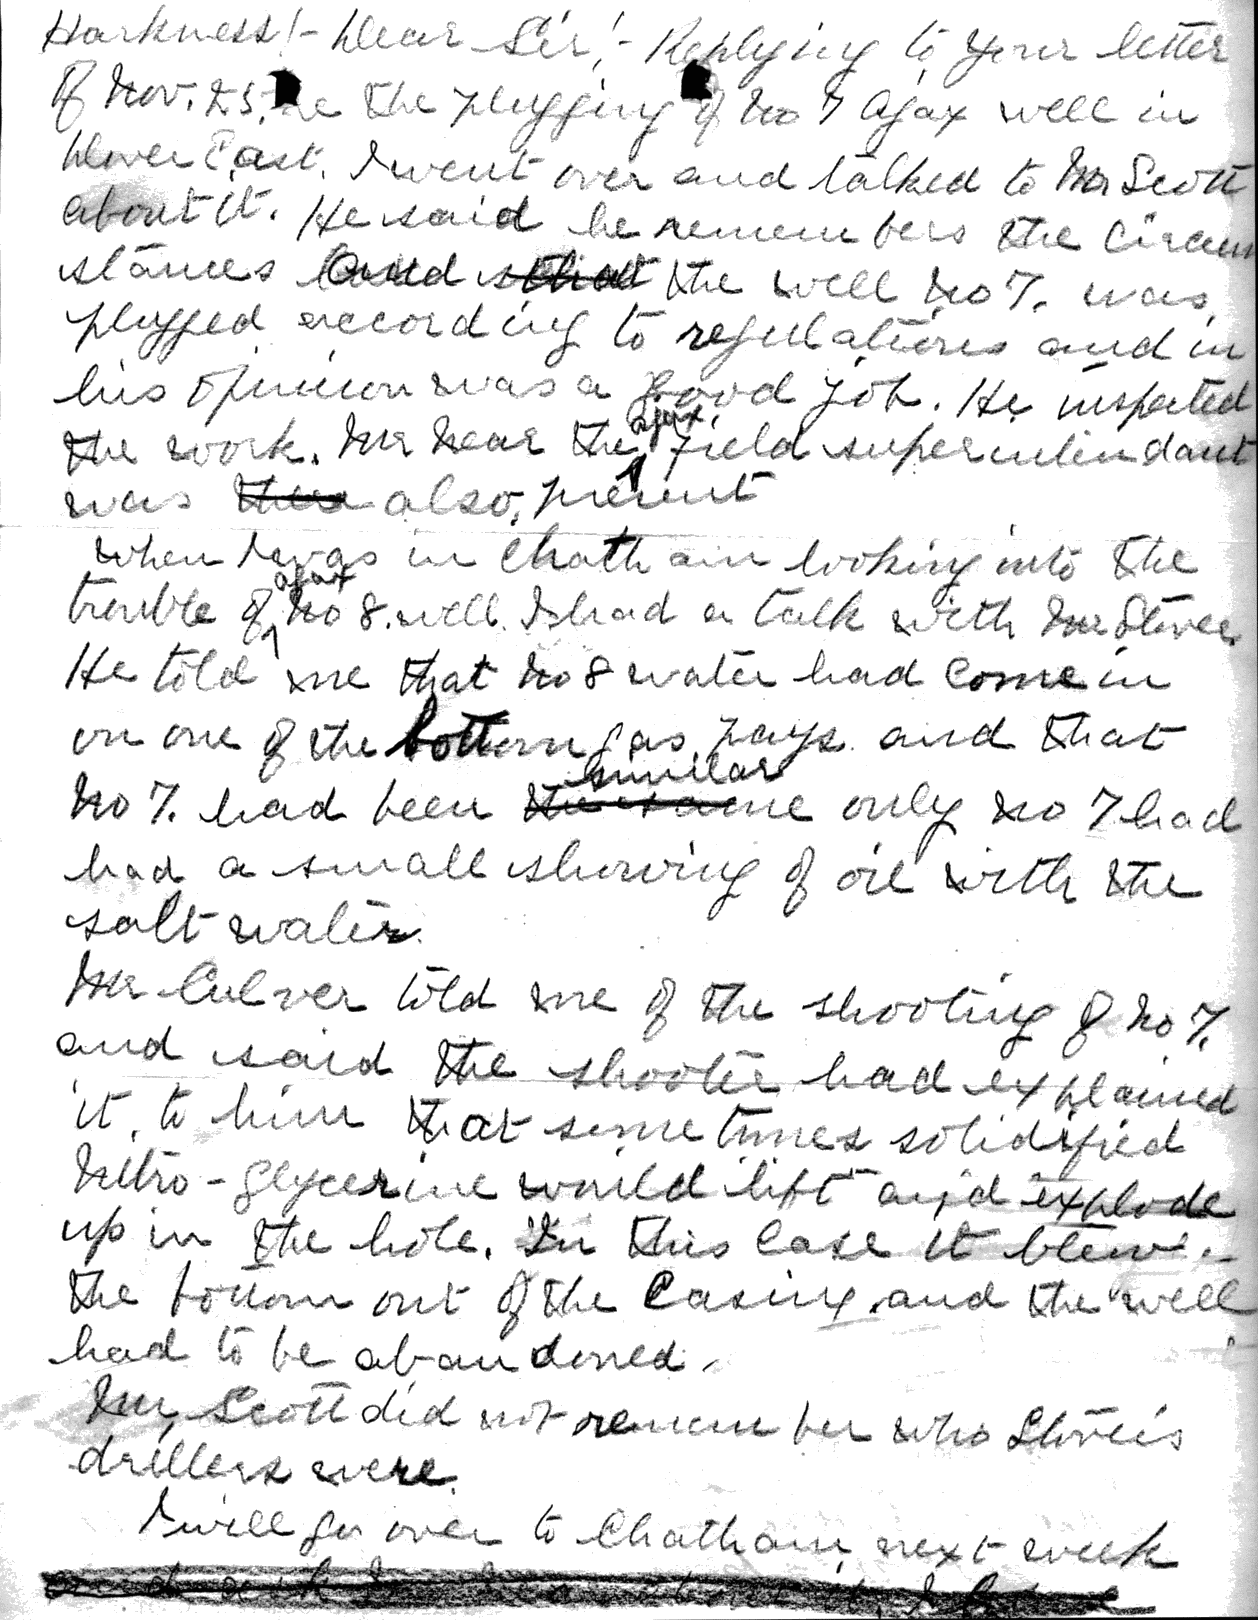 Harkness!- Dear Sir,!- Replying to your letter
of Nov. 25, re the plugging of No 7 Ajax well in
Dover East. I went over and talked to Mr Scott
about it. He said he remembers the circum
stances and that the well No 7. was
plugged according to regulations and in
his opinion was a good job. He inspected
the work. Mr Near the Ajax field superintendant
was also, present
When I was in Chatham looking into the
trouble of Ajax No 8. well. I had a talk with Mr
He told me that No 8 water had come in
on one of the bottom gas pays and that
No 7. had been similar only No 7 had
had a small showing of oil with the
salt water.
Mr Culver told me of the shooting of No 7.
and said the shooter had explained
it, to him that some times solidified
Nitro-glycerine would lift and explode
up in the hole. In this case it blew
the bottom out of the casing and the well
had to be abandoned.
Mr, Scott did not remember who
drillers were.
I will go over to Chatham, next week